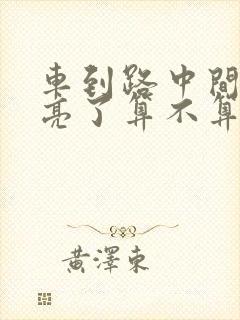 車到路中間
亮了算不算
黃澤東